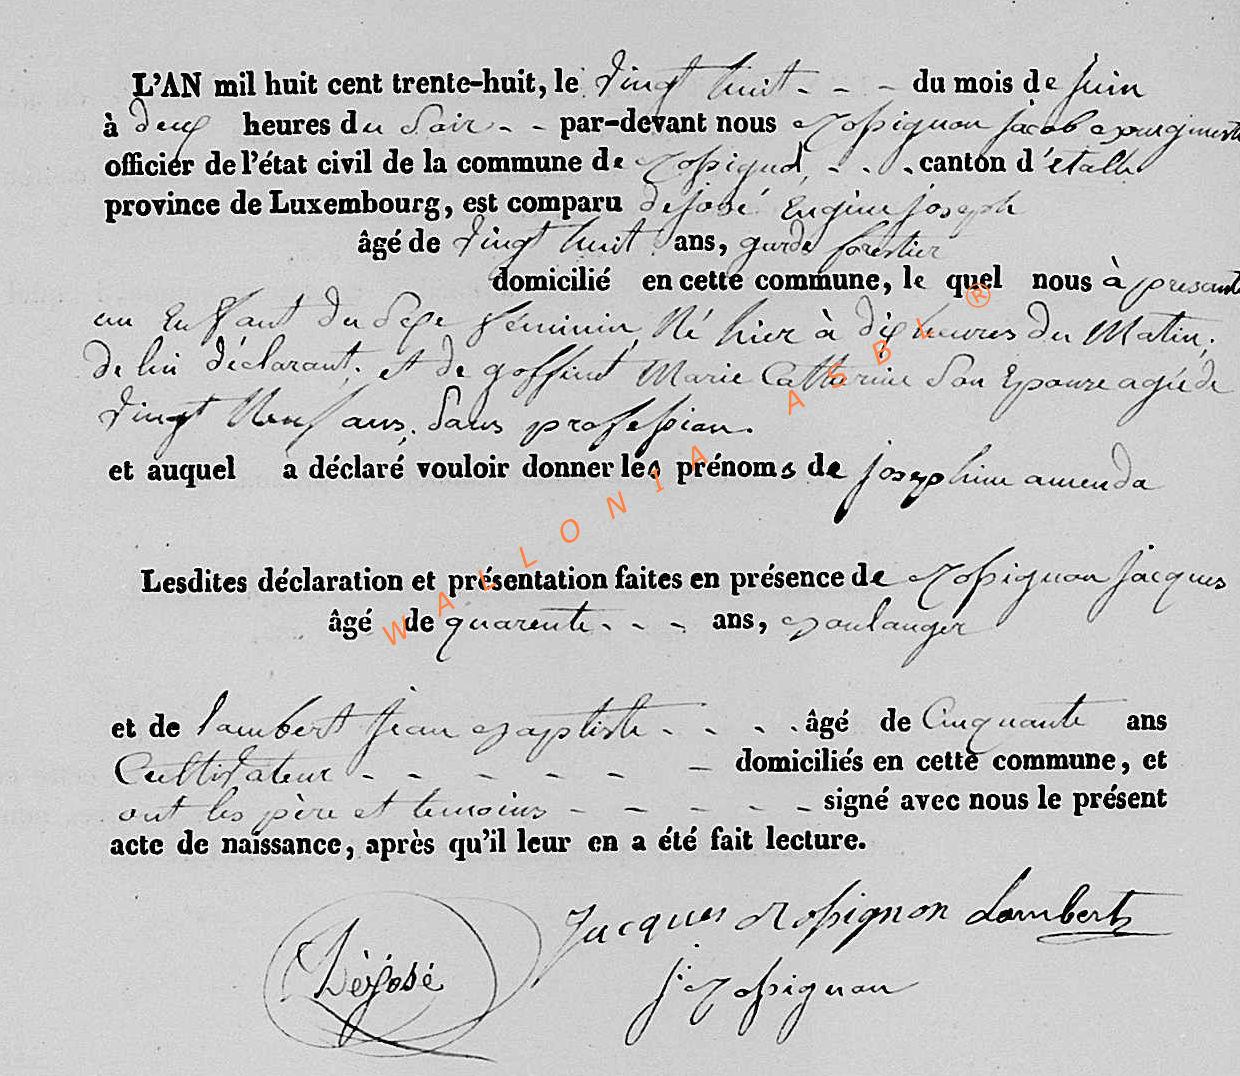 L'AN mil huit cent trente-huit, le vingt huit - - - du mois de juin
à deux heures du Soir - - par-devant nous Rossignon jacob Bourgmestre
officier de l'état civil de la commune de Rossignol, - - - canton d'étalle
province de Luxembourg, est comparu dejosé Eugène joseph
âgé de vingt huit ans, garde forestier
domicilié en cette commune, le quel nous à présenté
un Enfant du Sexe féminin, Né hier à dix heures du Matin,
de lui déclarant, et de goffinet Marie Catherine Son Epouze agée de
vingt Neuf ans, Sans profession.
et auquel a déclaré vouloir donner les prénoms de josephine amenda
Lesdites déclaration et présentation faites en présence de Rossignon jacques
âgé de quarente - - - ans, Boulanger
et de lambert jean Baptiste - - - - âgé de Cinquante ans
Cultivateur - - - - - - domiciliés en cette commune, et
ont les père et temoins - - - - - signé avec nous le présent
acte de naissance, après qu'il leur en a été fait lecture.
Jacques Rossignon Lambert
Déjosé
j. Rossignon
WALLONIA ASBL ®